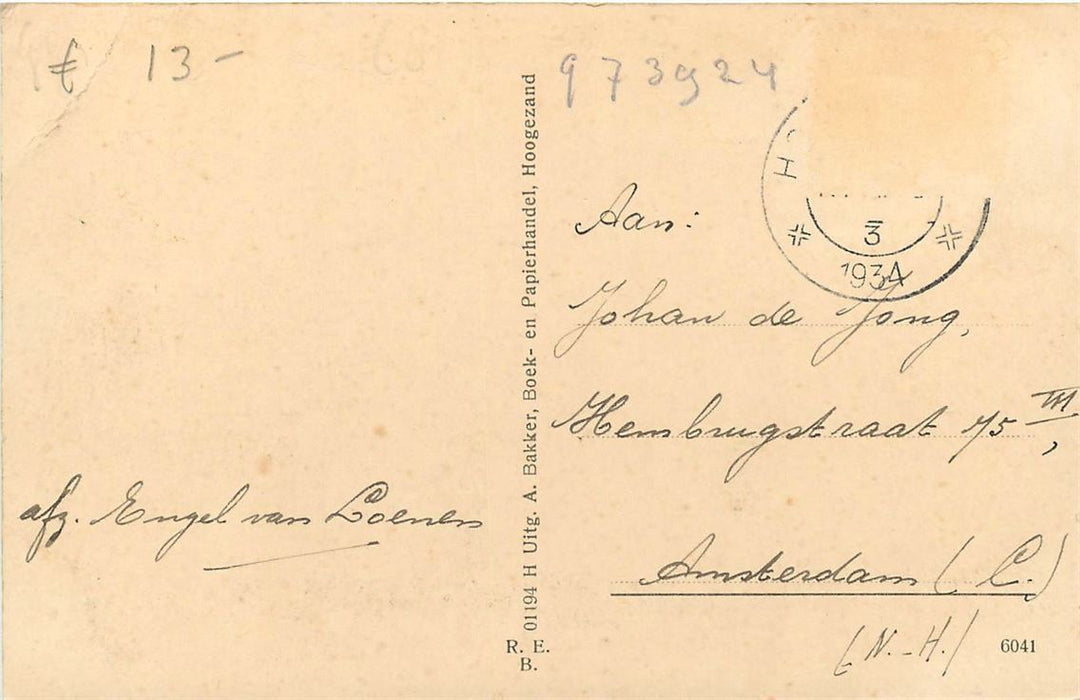 € 13-
973924
H
3
1934
Aan:
Johan de Jong,
Hembrugstraat 75 III,
Amsterdam (C.)
(N.-H.)
afz. Engel van Loenen
01194 H Uitg. A. Bakker, Boek- en Papierhandel, Hoogezand
R. E.
B.
6041